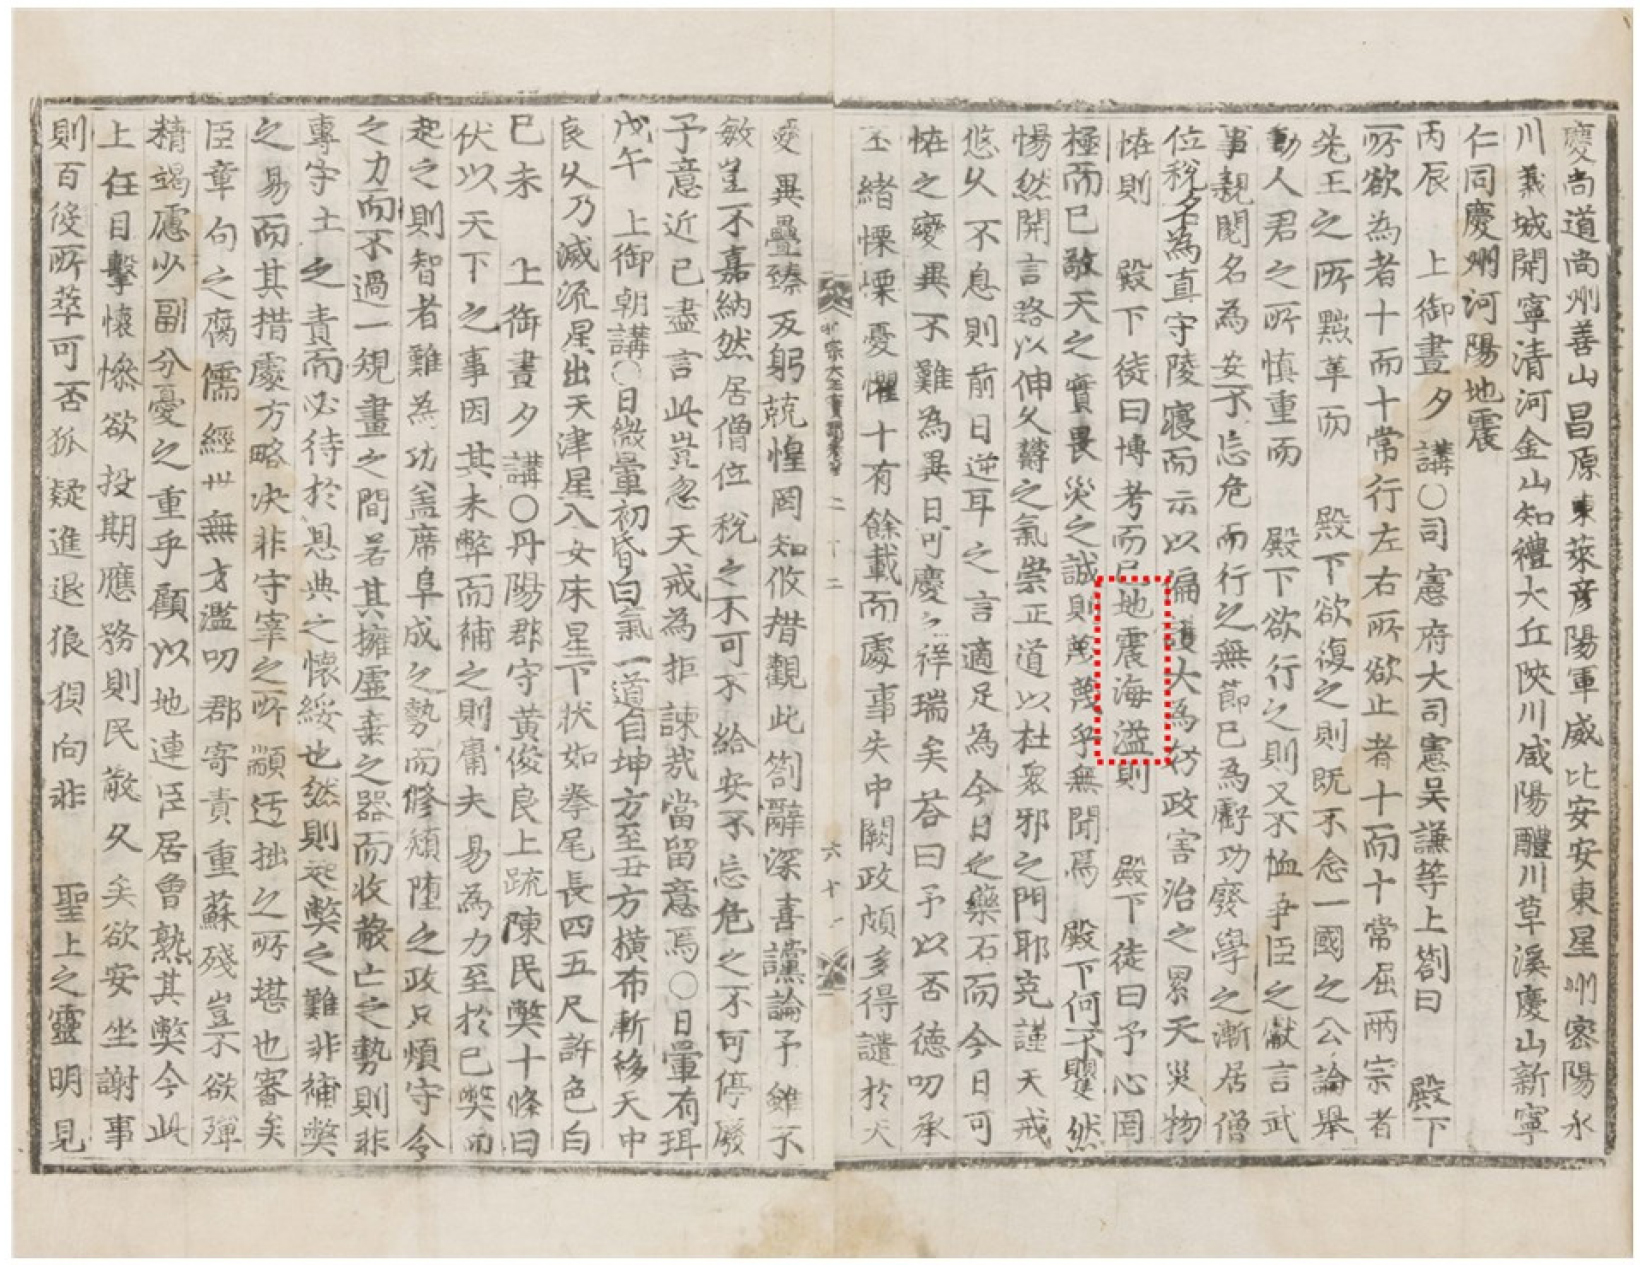 慶尚道尚州善山昌原東萊彦陽軍威比安安東星州密陽永
川義城開寧清河金山知禮大丘陜川咸陽醴川草溪慶山新寧
仁同慶州河陽地震
丙辰 上御晝夕講○司憲府大司憲吳謙等上箚曰 殿下
所欲為者十而十常行左右所欲止者十而十常屈兩宗者
先王之所黜革而 殿下欲復之則既不念一國之公論舉
動人君之所慎重而 殿下欲行之則又不恤爭臣之獻言武
事親閱名為安不忘危而行之無節已為虧功廢學之漸居僧
位稅名為直守陵寢而示以偏 大為妨政害治之累天災物
怪則 殿下徒曰博考而已地震海溢則 殿下徒曰予心罔
極而已敬天之實畏災之誠則蔑蔑乎無聞焉 殿下何不瞿然
惕然開言路以伸久鬱之氣崇正道以杜衆邪之門耶克謹天戒
悠久不息則前日逆耳之言適足為今日之藥石而今日可
怪之變異不難為異日可慶之祥瑞矣荅曰予以否德叨承
丕緒慄慄憂懼十有餘載而處事失中闕政頗多得譴於天
變異疊臻反躬兢惶罔知攸措觀此箚辭深喜讜論予雖不
敏豈不嘉納然居僧位稅之不可不給安不忘危之不可停廢
予意近已盡言此豈忽天戒為拒諫哉當留意焉○日暈有珥
戊午 上御朝講○日微暈初昏白氣一道自坤方至丑方橫布漸移天中
良久乃滅流星出天津星入女床星下狀如拳尾長四五尺許色白
巳未 上御晝夕講○丹陽郡守黃俊良上疏陳民弊十條曰
伏以天下之事因其未弊而補之則庸夫易為力至於已弊而
起之則智者難為功盖席阜成之勢而修頹墮之政只煩守令
之力而不過一規畫之間若其擁虛棄之器而收散亡之勢則非
專守土之責而必待於恩典之懷綏也然則起弊之難非補弊
之易而其措處方略決非守宰之所顓迂拙之所堪也審矣
臣章句之腐儒經世無才濫叨郡寄責重蘇殘豈不欲殫
精竭慮以副分憂之重乎顧以地連臣居曾熟其弊今此
上任目擊懷慘欲投期應務則民散久矣欲安坐謝事
則百倿所萃可否狐疑進退狼狽向非 聖上之靈明見